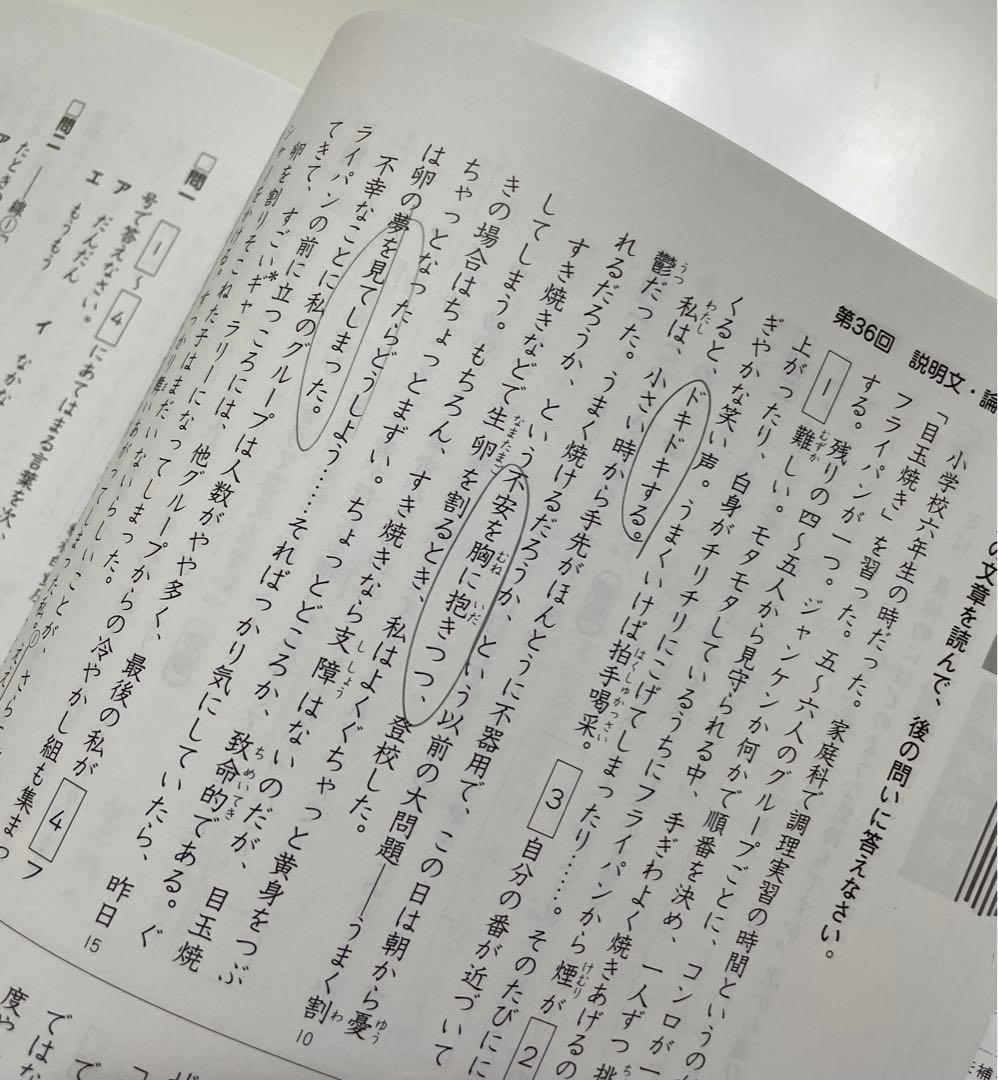 第36回 説明文・論
の文章を読んで、後の問いに答えなさい。
小学校六年生の時だった。家庭科で調理実習の時間というの
「目玉焼き」を習った。五〜六人のグループごとに、コンロが一
フライパンが一つ。ジャンケンか何かで順番を決め、一人ずつ挑
する。残りの四〜五人から見守られる中、手ぎわよく焼きあげるの
1 難しい。モタモタしているうちにフライパンから煙が 2
上がったり、白身がチリチリにこげてしまったり……。そのたびにに
ぎやかな笑い声。うまくいけば拍手喝采。 3 自分の番が近づいて
くると、ドキドキする。
私は、小さい時から手先がほんとうに不器用で、この日は朝から憂
鬱だった。うまく焼けるだろうか、という以前の大問題――うまく割
れるだろうか、という不安を胸に抱きつつ、登校した。
10
すき焼きなどで生卵を割るとき、私はよくぐちゃっと黄身をつぶ
してしまう。もちろん、すき焼きなら支障はないのだが、目玉焼
きの場合はちょっとまずい。ちょっとどころか、致命的である。ぐ
ちゃっとなったらどうしよう……そればっかり気にしていたら、昨日
は卵の夢を見てしまった。
15
不幸なことに私のグループは人数がやや多く、最後の私が 4 フ
ライパンの前に立つころには、他グループからの冷やかし組も集まっ
てきて、すごい*ギャラリーになってしまった。
問一 1 〜 4 にあてはまる言葉を次、
号で答えなさい。
ア だんだん イ なかな
エ もうもう
問二 ――線①「
たときの
ア